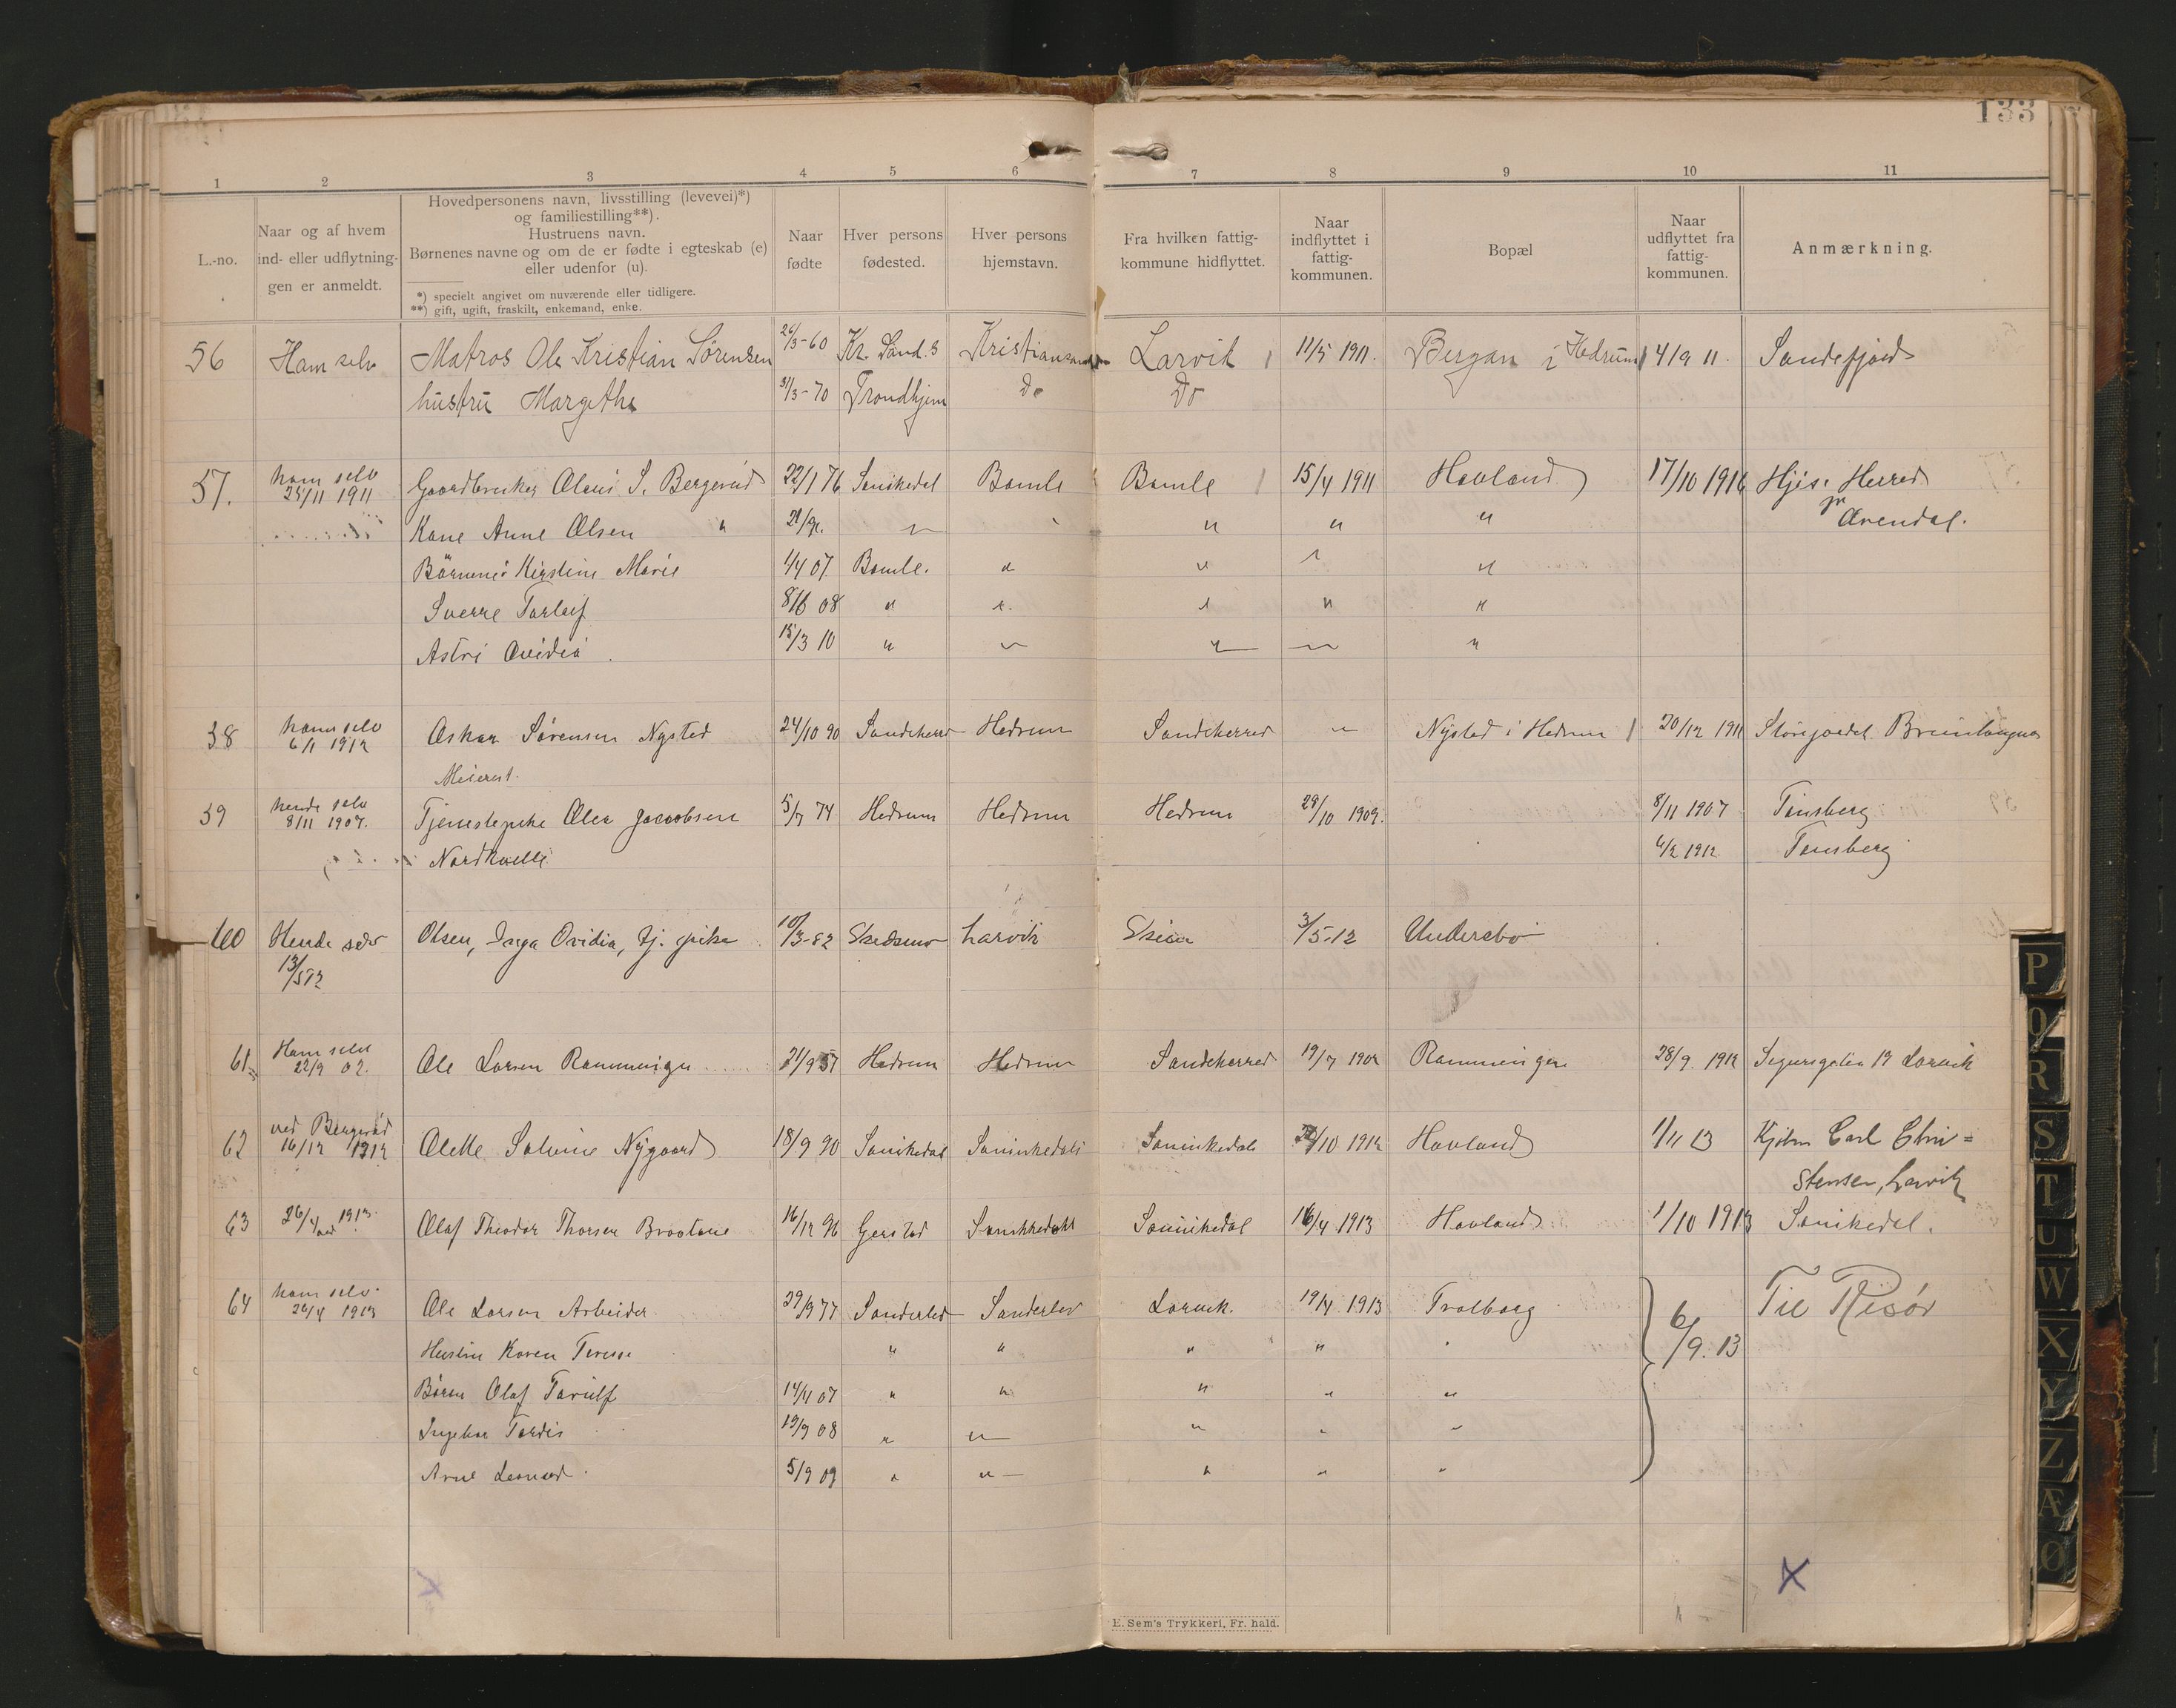 133
1 2 3 4 5 6 7 8 9 10 11
L.-no.
Naar og af hvem
ind- eller udflytnin-
gen er anmeldt.
Hovedpersonens navn, livsstilling (levevei)*)
og familiestilling**).
Hustruens navn.
Børnenes navne og om de er fødte i egteskab (e)
eller udenfor (u).
*) specielt angivet om nuværende eller tidligere.
**) gift, ugift, fraskilt, enkemand, enke.
Naar
fødte
Hver persons
fødested.
Hver persons
hjemstavn.
Fra hvilken fattig-
kommune hidflyttet.
Naar
indflyttet i
fattig-
kommunen.
Bopæl
Naar
udflyttet fra
fattig-
kommunen.
Anmærkning.
56 Ham selv Matros Ole Kristian Sørensen 26/3-60 Kr. Sand. S Kristiansand Larvik 11/5 1911. Bergan i Hedrum 14/9 11. Sandefjord
hustru Margethe 31/3-70 Trondhjem Do Do
57. ham selv
25/11 1911 Gaardbruker Olaus S. Bergerud 22/1 76 Sanikedal Bamle Bamle 15/4 1911 Havland 17/10 1916 Hjis. Herred
pr Arendal.
Kone Anne Olsen " " " "
Børnene: Kirstine Marie 1/4 07. Bamle. " " " "
Sverre Torleif 8/6 08 " " " " "
Astri Ovidia 15/3 10 " " " " "
58 ham selv
6/1 1912 Oskar Sørensen Nysted 24/10 90 Sandeherred Hedrum Sandeherred " Nysted i Hedrum 20/12 1911 Brunlanges
Meierist.
59 hende selv
8/11 1907. Tjenestepike Olea Jacobsen 5/7 74 Hedrum Hedrum Hedrum 29/10 1909. 8/11 1907 Tønsberg
Nordkvelle 6/2 1912 Tønsberg
60 Hende selv
13/5 12 Olsen, Inga Ovidia, tj. pike 10/3-82 Skedsmo Larvik Skien 3/5-12 Undersbo
61 Ham selv
22/9 02. Ole Larsen Rammingen 21/9 57 Hedrum Hedrum Sandeherred 19/7 1902 Rammingen 28/9. 1912 Sigursgaten 19 Larvik
62 ved Bergerud
16/12 1912 Olette Salvine Nygaard 18/9 90 Sanikedal Sannikedals Sannikedals 22/10 1912 Havland 1/11 13 Kjøbm Carl Chri=
stensen, Larvik
63 26/4 1913. Olaf Theodor Thorsen Braatane 16/12 96 Gerstad Sannikedal Sannikedal 16/4 1913 Havland 1/10 1913 Sanikedal.
64 ham selv
26/4 1913 Ole Larsen Arbeider 29/9 77 Sønderled Sønderlev Larvik. 19/4 1913 Trolborg 6/9. 13 Til Risør
Hustru Karen Terese " " " "
Børn Olaf Torulf 14/4 07 " " " " "
Ingebor Tordis 19/9 08 " " " " "
Arne Leonard 5/9 09 " " " " "
X
E. Sem's Trykkeri, Fr. hald.
P
Q
R
S
T
U
W
X
Y
Z
Æ
Ø